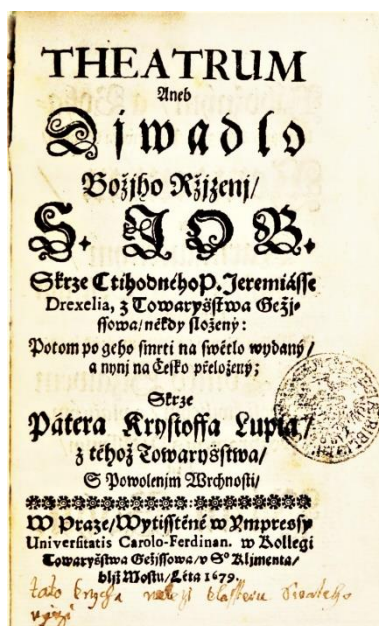 THEATRUM
Aneb
Djwadlo
Božjho Ržjzenj/
S. JOB.
Skrze Ctihodného P. Jeremiásse
Drexelia, z Towaryšstwa Gežj-
ssowa/ někdy složený:
Potom po geho smrti na swětlo wydaný/
a nynj na Česko přeložený;
Skrze
Pátera Krysstoffa Lupia/
z téhož Towaryšstwa/
S Powolenjm Wrchnosti/
W Praze/ Wytisstěné w Ympressy
Universitatis Carolo-Ferdinan. w Kollegi
Towaryšstwa Gežissowa/ v S° Klimenta/
bljž Mostu/ Léta 1679.
tato knyha